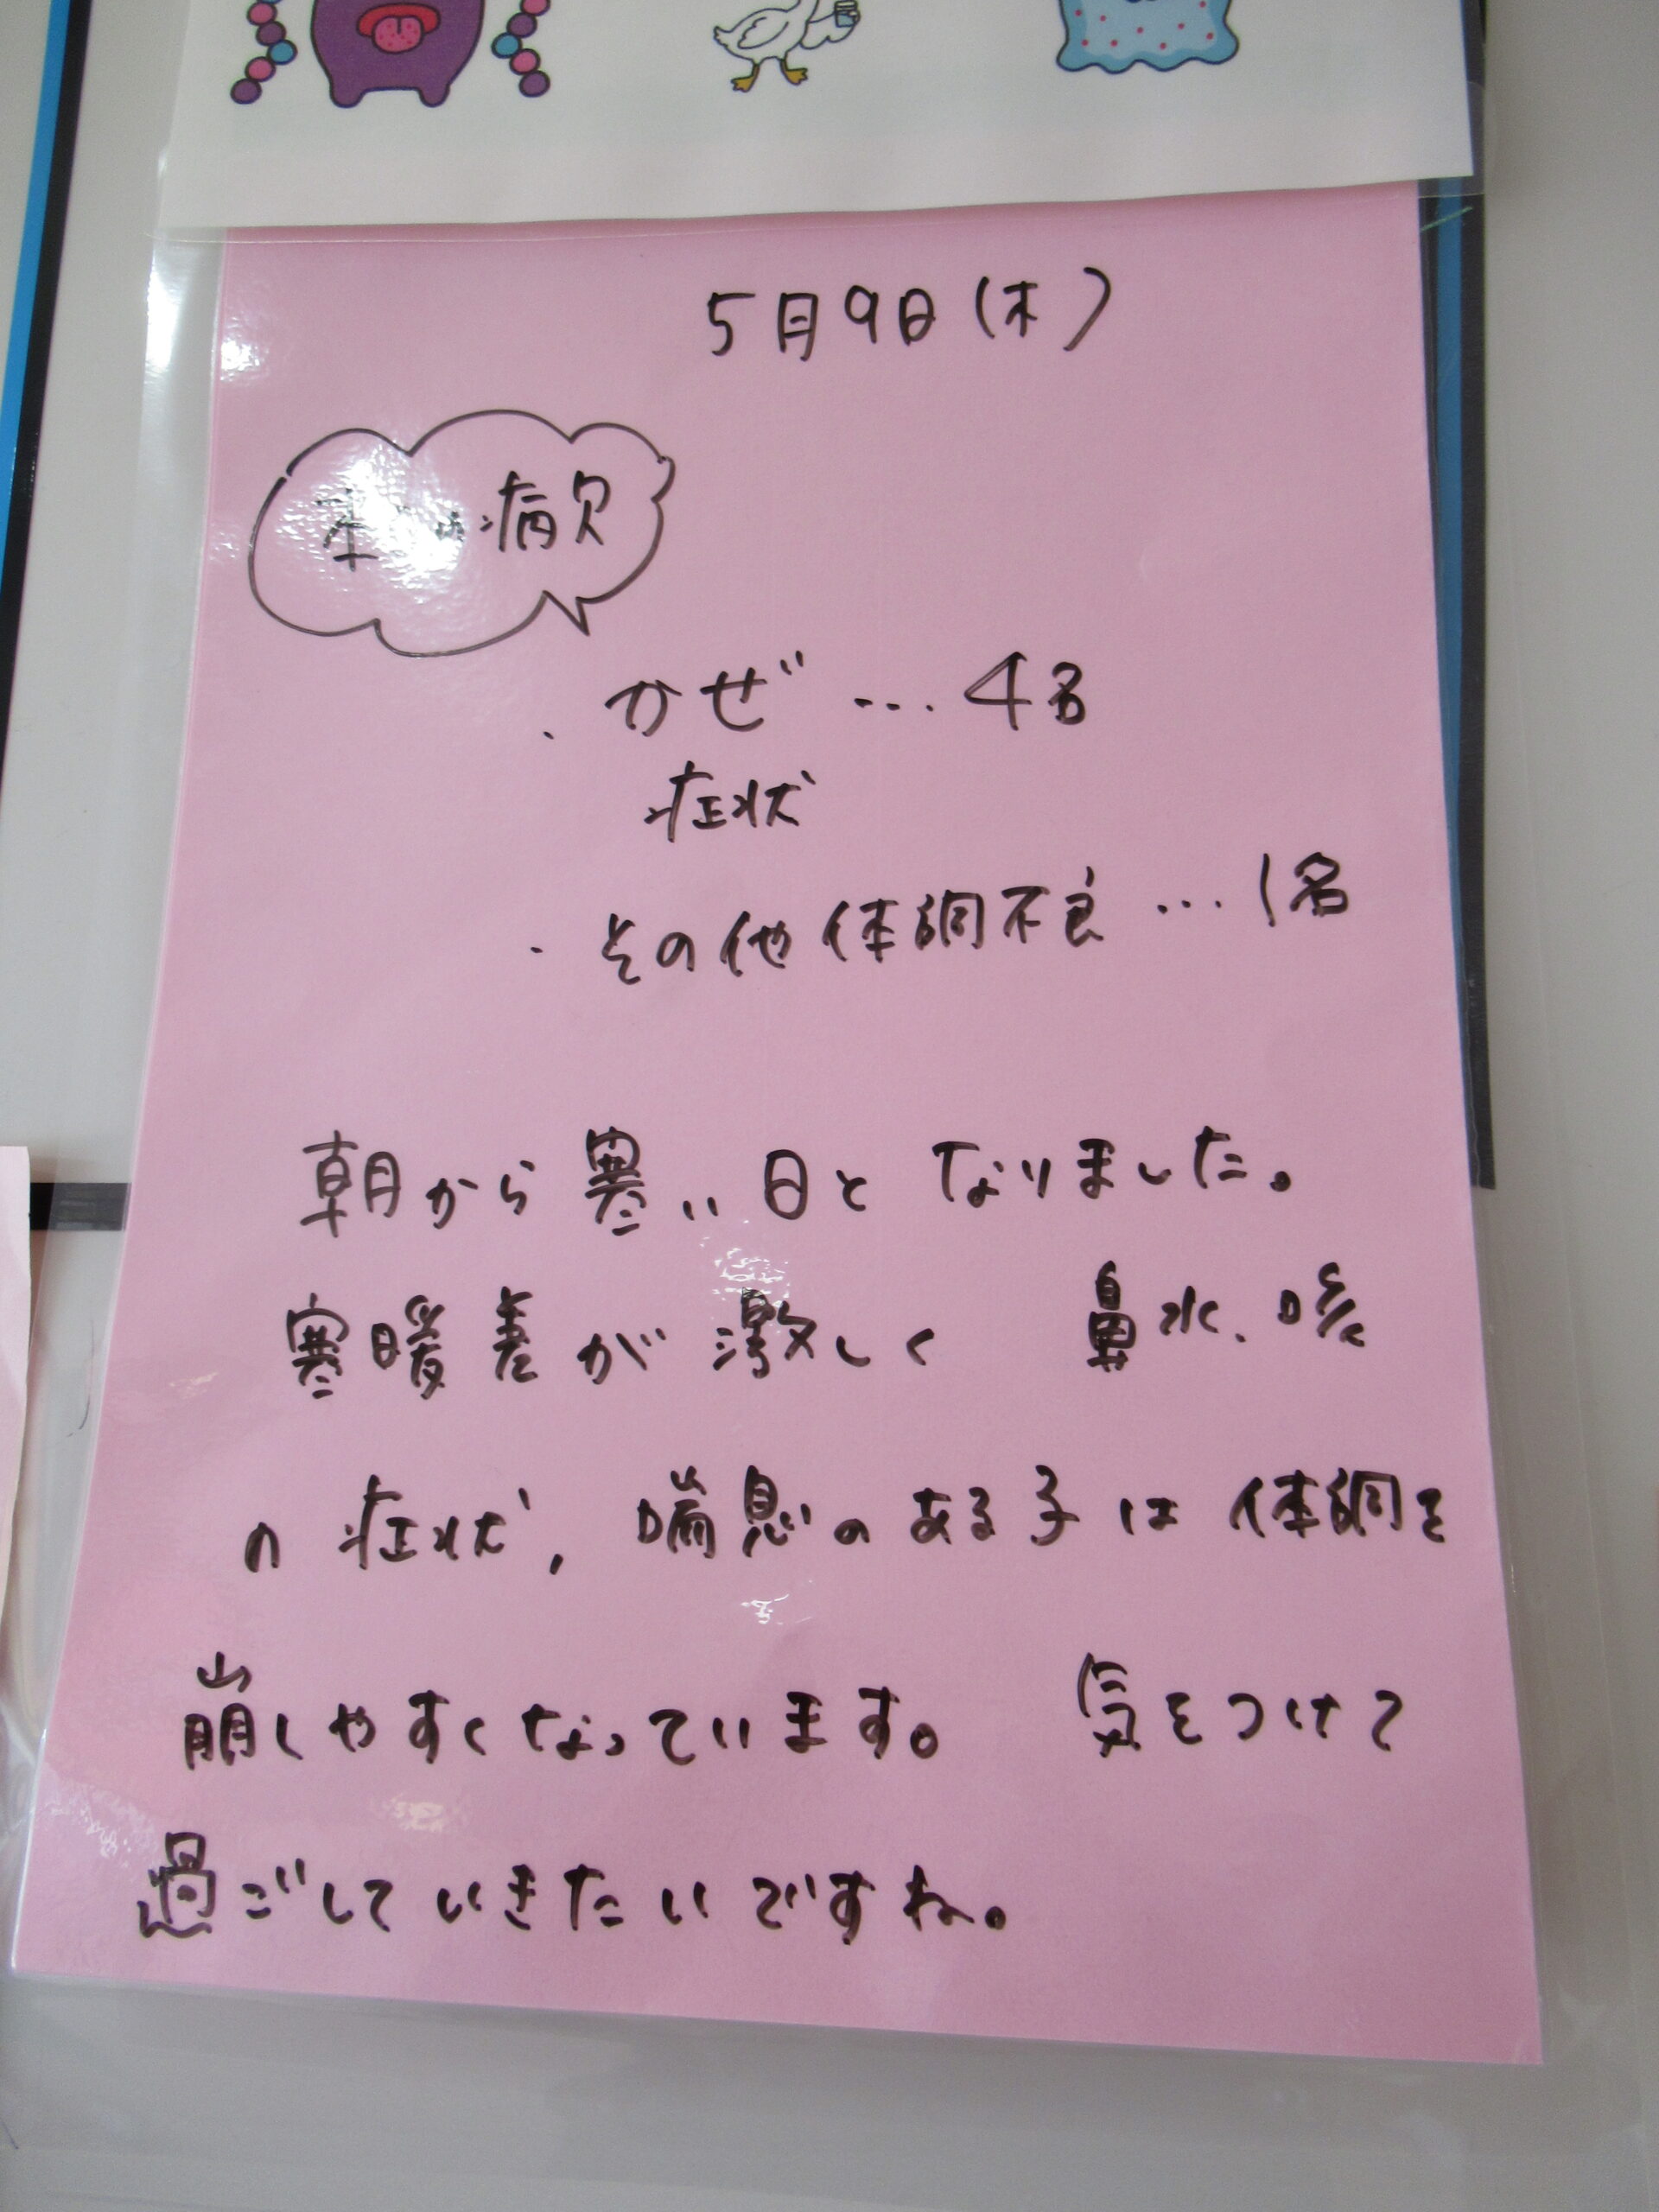 5月9日(木)
病欠
・かぜ…4名
症状
・その他体調不良…1名
朝から寒い日となりました。
寒暖差が激しく 鼻水、咳
の症状、喘息のある子は体調を
崩しやすくなっています。 気をつけて
過ごしていきたいですね。